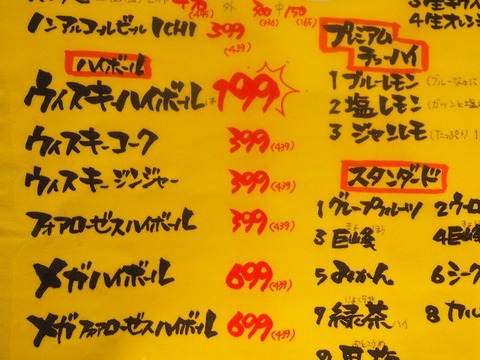 ノンアルコールビール ICHI 399
(439)
ハイボール
ウィスキーハイボールは 199
ウィスキーコーク 399(439)
ウィスキージンジャー 399(439)
フォアローゼスハイボール 399(439)
メガハイボール 699(439)
メガフォアローゼスハイボール 699(439)
外 中150
(165)
プレミアム
チューハイ
1 ブルーレモン
2 塩レモン
3 ジャンレモ
スタンダード
1 グレープフルーツ
3 巨峰
4 巨峰
5 みかん 6 シーク
7 緑茶ハイ 8 カル